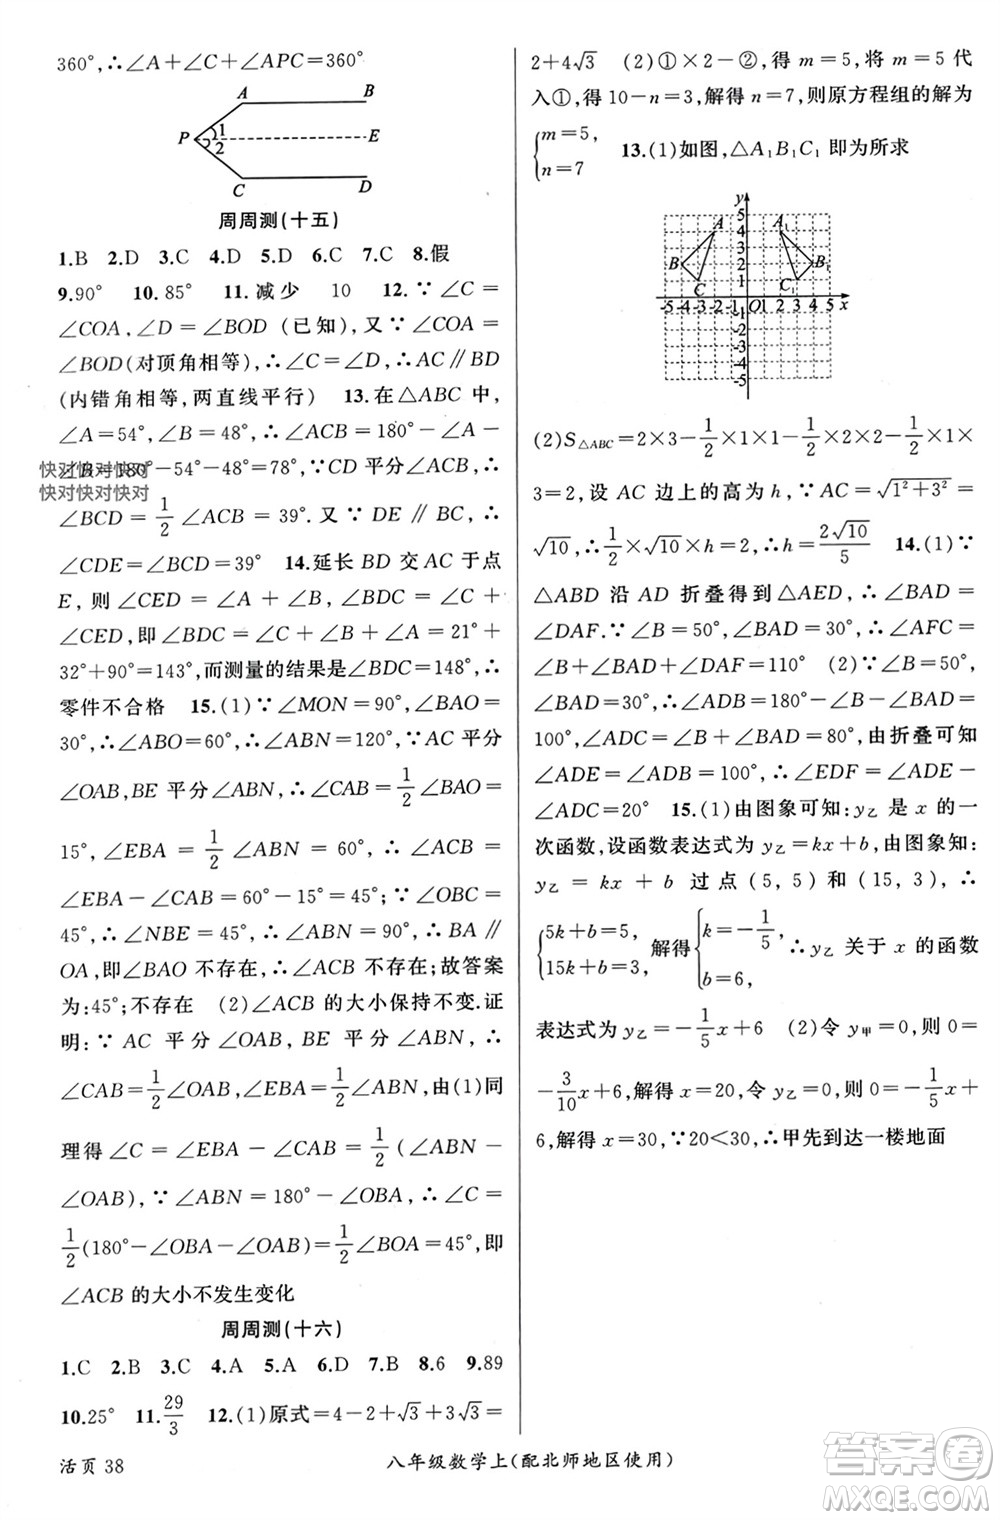 360°,∴∠A＋∠C＋∠APC＝360°
A B
P 1 2 E
C D
周周测(十五)
1.B 2.D 3.C 4.D 5.D 6.C 7.C 8.假
9.90° 10.85° 11.减少 10 12.∵∠C＝
∠COA,∠D＝∠BOD(已知),又∵∠COA＝
∠BOD(对顶角相等),∴∠C＝∠D,∴AC∥BD
(内错角相等,两直线平行) 13.在△ABC中,
∠A＝54°,∠B＝48°,∴∠ACB＝180°－∠A－
∠B＝180°－54°－48°＝78°,∵CD平分∠ACB,∴
快对快对快对
快对快对快对
∠BCD＝1/2∠ACB＝39°.又∵DE∥BC,∴
∠CDE＝∠BCD＝39° 14.延长BD交AC于点
E,则∠CED＝∠A＋∠B,∠BDC＝∠C＋
∠CED,即∠BDC＝∠C＋∠B＋∠A＝21°＋
32°＋90°＝143°,而测量的结果是∠BDC＝148°,∴
零件不合格 15.(1)∵∠MON＝90°,∠BAO＝
30°,∴∠ABO＝60°,∴∠ABN＝120°,∵AC平分
∠OAB,BE平分∠ABN,∴∠CAB＝1/2∠BAO＝
15°,∠EBA＝1/2∠ABN＝60°,∴∠ACB＝
∠EBA－∠CAB＝60°－15°＝45°;∵∠OBC＝
45°,∴∠NBE＝45°,∴∠ABN＝90°,∴BA∥
OA,即∠BAO不存在,即∠ACB不存在;故答案
为:45°;不存在 (2)∠ACB的大小保持不变.证
明:∵AC平分∠OAB,BE平分∠ABN,∴
∠CAB＝1/2∠OAB,∠EBA＝1/2∠ABN,由(1)同
理得∠C＝∠EBA－∠CAB＝1/2(∠ABN－
∠OAB),∵∠ABN＝180°－∠OBA,∴∠C＝
1/2(180°－∠OBA－∠OAB)＝1/2∠BOA＝45°,即
∠ACB的大小不发生变化
周周测(十六)
1.C 2.B 3.C 4.A 5.A 6.D 7.B 8.6 9.89
10.25° 11.29/3 12.(1)原式＝4－2＋√3＋3√3＝
2＋4√3 (2)①×2－②,得m＝5,将m＝5代
入①,得10－n＝3,解得n＝7,则原方程组的解为
{m＝5,
n＝7 13.(1)如图,△A₁B₁C₁即为所求
y
5
4
3
2
1
A A₁
B B₁
C C₁
-5-4-3-2-1 O 1 2 3 4 5 x
-1
-2
-3
-4
-5
(2)S△ABC＝2×3－1/2×1×1－1/2×2×2－1/2×1×
3＝2,设AC边上的高为h,∵AC＝√(1²＋3²)＝
√10,∴1/2×√10×h＝2,∴h＝2√10/5 14.(1)∵
△ABD沿AD折叠得到△AED,∴∠BAD＝
∠DAF.∵∠B＝50°,∠BAD＝30°,∴∠AFC＝
∠B＋∠BAD＋∠DAF＝110° (2)∵∠B＝50°,
∠BAD＝30°,∴∠ADB＝180°－∠B－∠BAD＝
100°,∠ADC＝∠B＋∠BAD＝80°,由折叠可知
∠ADE＝∠ADB＝100°,∴∠EDF＝∠ADE－
∠ADC＝20° 15.(1)由图象可知:y乙是x的一
次函数,设函数表达式为y乙＝kx＋b,由图象知:
y乙＝kx＋b过点(5,5)和(15,3),∴
{5k＋b＝5,
15k＋b＝3, 解得{k＝－1/5,
b＝6, ∴y乙关于x的函数
表达式为y乙＝－1/5x＋6 (2)令y甲＝0,则0＝
－3/10x＋6,解得x＝20,令y乙＝0,则0＝－1/5x＋
6,解得x＝30,∵20＜30,∴甲先到达一楼地面
活页 38
八年级数学上(配北师地区使用)
答案圈
MXQE.COM